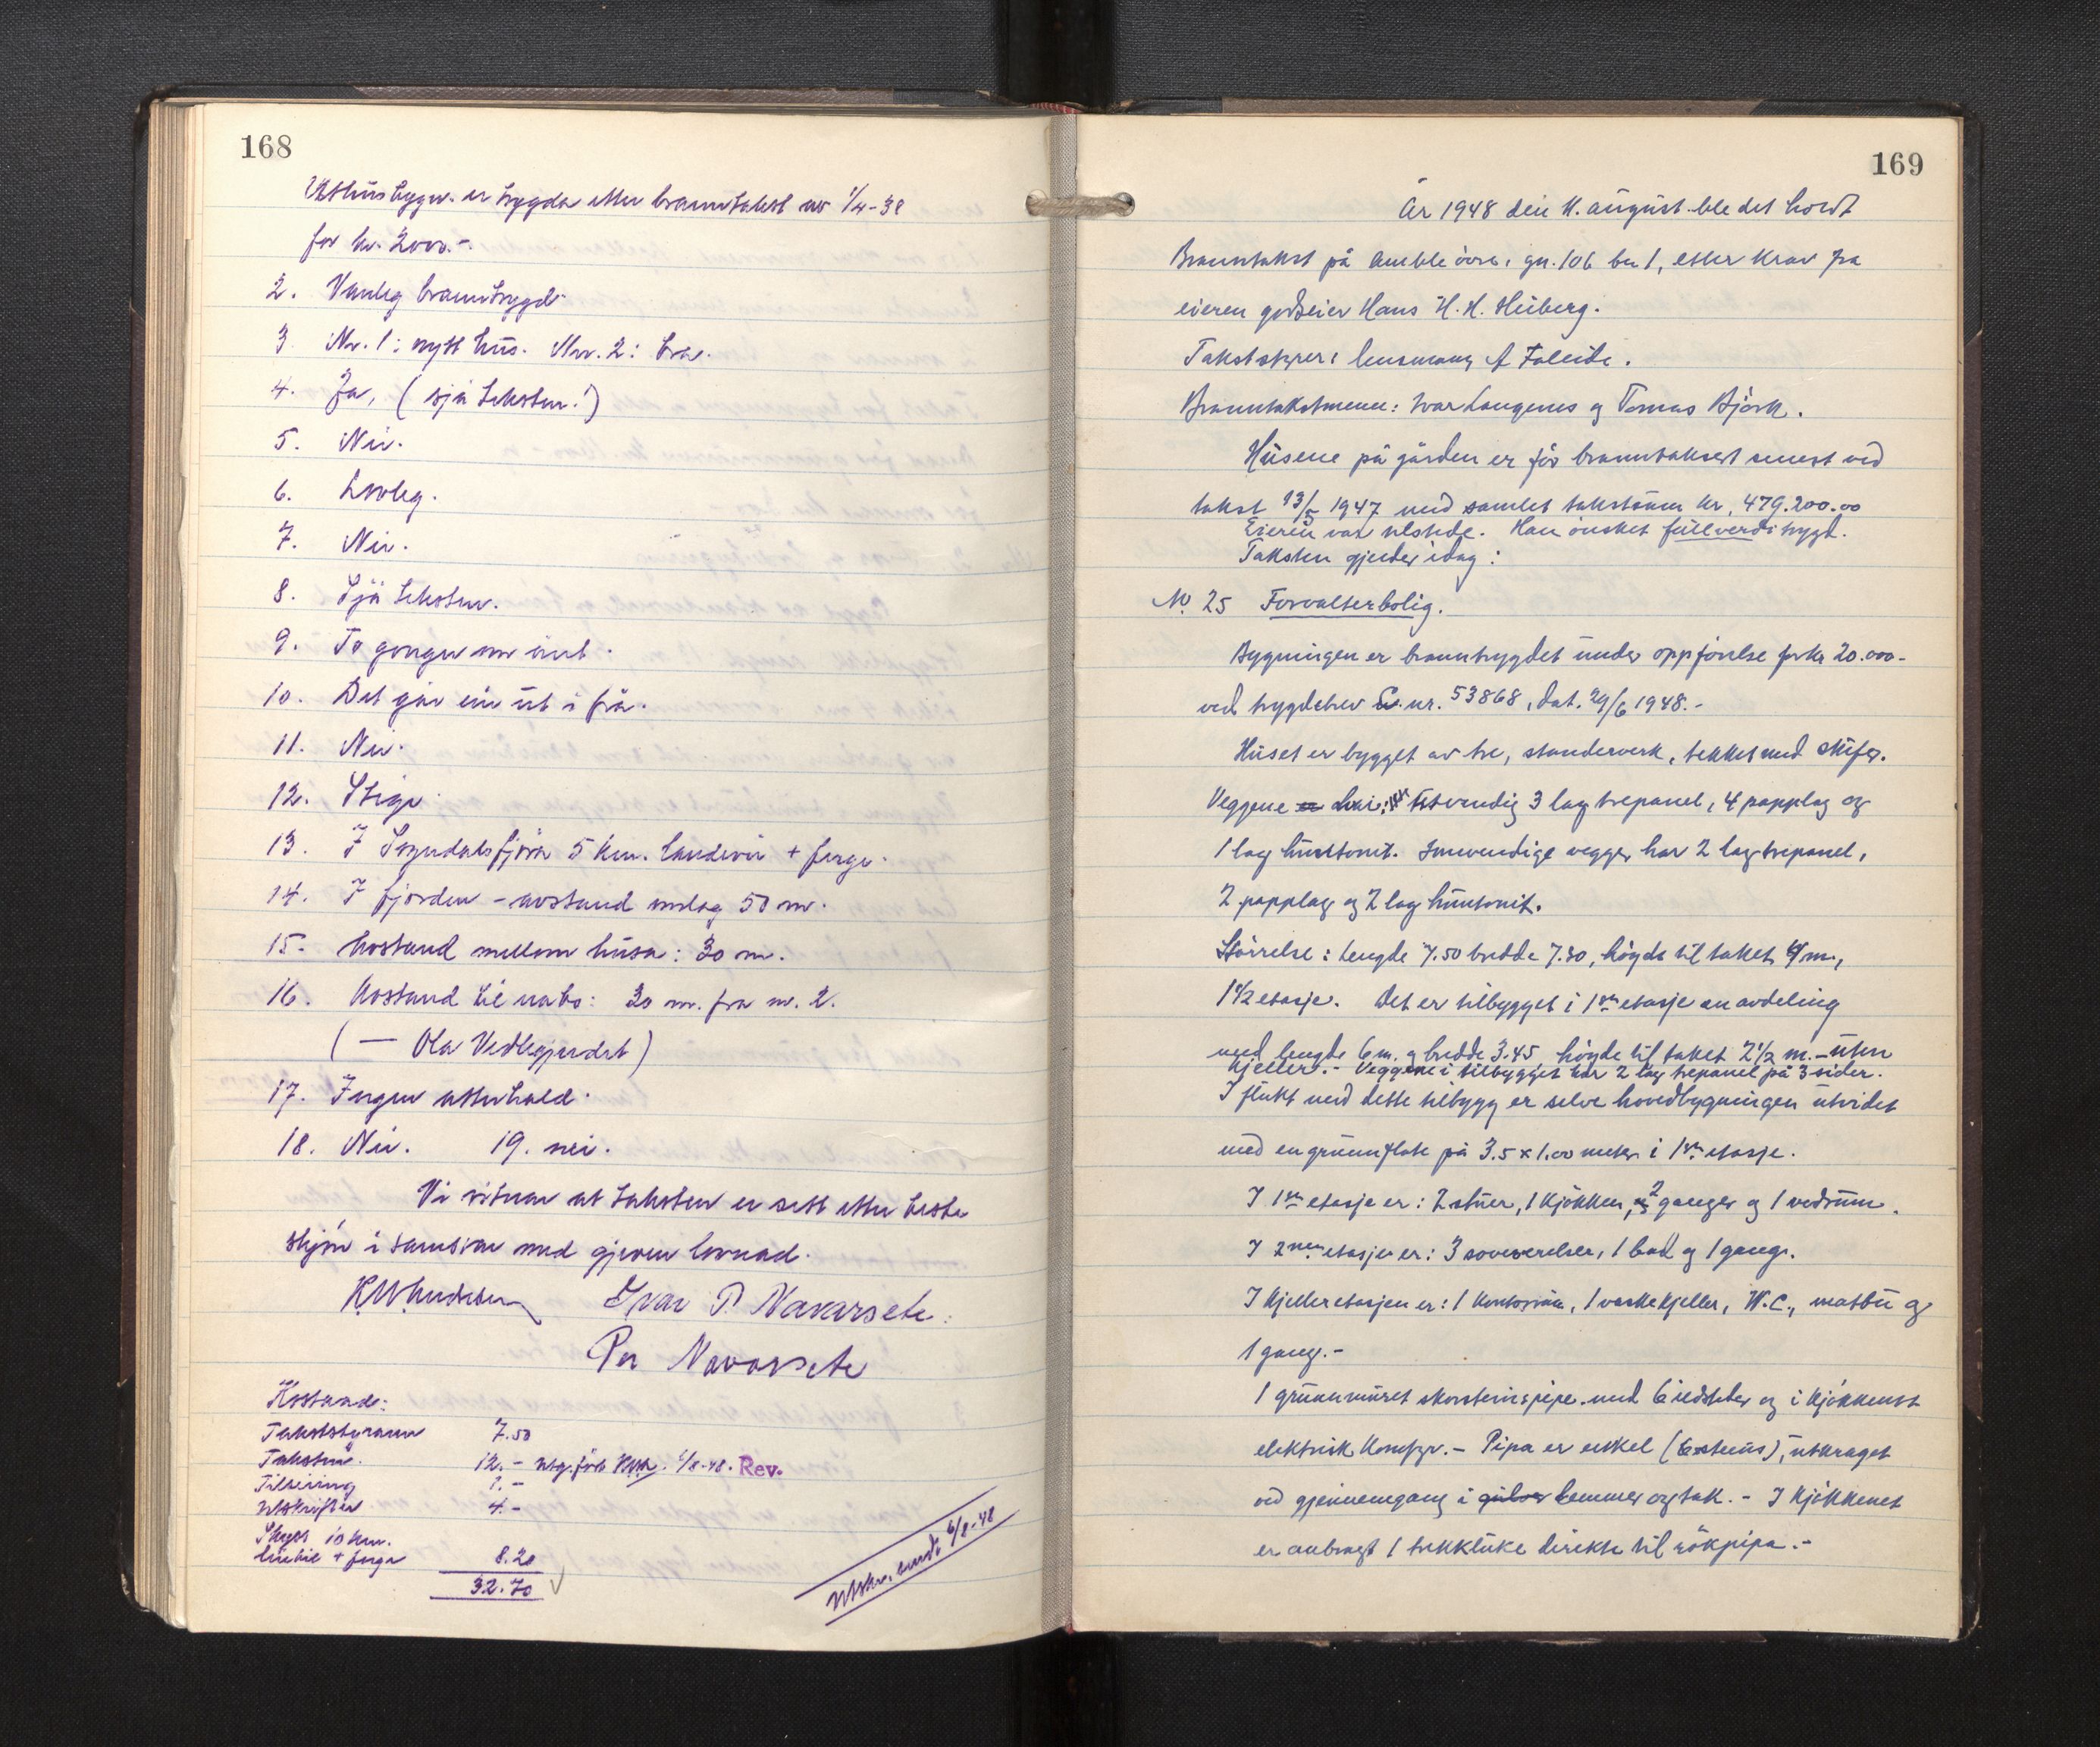 168
Uthusbygn. er trygda etter branntakst av 1/4-38
for kr. 2000.-.
2. Vanleg branntrygd
3 Nr. 1: nytt hus. Nr. 2: bra.
4. Ja, (sjå teksten!)
5. Nei.
6. Lovleg.
7. Nei.
8. Sjå teksten.
9. To gonger om året.
10. Det går ein ut i frå.
11. Nei.
12. Stige
13. I Sogndalsfjøra 5 km. landevei + ferge.
14. I fjorden - avstand omlag 50 m.
15. Avstand mellom husa: 30 m.
16. Avstand til nabo: 30 m. fra nr. 2.
( — Ola Vedlegjerdet)
17. Ingen atterhald.
18. Nei. 19. nei.
Vi vitnar at taksten er sett etter beste
skjøn i samsvar med gjeven lovnad.
Ivar P. Navarsete.
Per Navarsete
Kostnad:
Takststyraren 7.50
Takstm. 12.- utg. ført 6/8-48. Rev.
Tilseiing 1.-
Utskrifter 4.-
Skyss 10 km.
bil + ferge 8.20
32.70
Utskr. sendt 6/8-48
169
År 1948 den 11. august ble det holdt
Branntakst på Amble øvre, gn. 106 bn 1, etter krav fra
eieren godseier Hans H. H. Heiberg.
Takststyrer: lensmann A Faleide.
Branntakstmenn: Ivar Langenes og Tomas Bjørk.
Husene på gården er før branntaksert senest ved
takst 13/5 1947 med samlet takstsum kr. 479.200.00
Eieren var tilstede. Han ønsket fullverditrygd.
Taksten gjelder idag:
No. 25 Forvalterbolig.
Bygningen er branntrygdet under oppførelse for kr 20.000-
ved trygdebrev nr. 53868, dat. 29/6 1948.-
Huset er bygget av tre, standerverk, tekket med skifer.
Veggene er har: Utvendig 3 lag trepanel, 4 papplag og
1 lag huntonit. Innvendige vegger har 2 lag trepanel,
2 papplag og 2 lag huntonit.
Størrelse: Lengde 7.50 bredde 7.30, høyde til taket 4 m.,
1 1/2 etasje. Det er tilbygget i 1ste etasje en avdeling
med lengde 6 m. og bredde 3.45, høyde til taket 2 1/2 m. - uten
kjeller.- Veggene i tilbygget har 2 lag trepanel på 3 sider.
I flukt med dette tilbygg er selve hovedbygningen utvidet
med en grunnflate på 3.5 x 1.00 meter i 1ste etasje.
I 1ste etasje er: 2 stuer, 1 kjøkken, 2 ganger og 1 vedrum.
I 2nen etasje er: 3 soveverelser, 1 bad og 1 gang.
I kjelleretasjen er: 1 kontorrum, 1 vaskekjeller, W.C., matbu og
1 gang.-
1 grunnmuret skorsteinspipe med 6 ildsteder og i kjøkkenet
elektrisk komfyr.- Pipa er enkel (6 steins), utkraget
ved gjennemgang i gulver lemmer og tak.- I kjøkkenet
er anbragt 1 trekkluke direkte til røkpipa.-